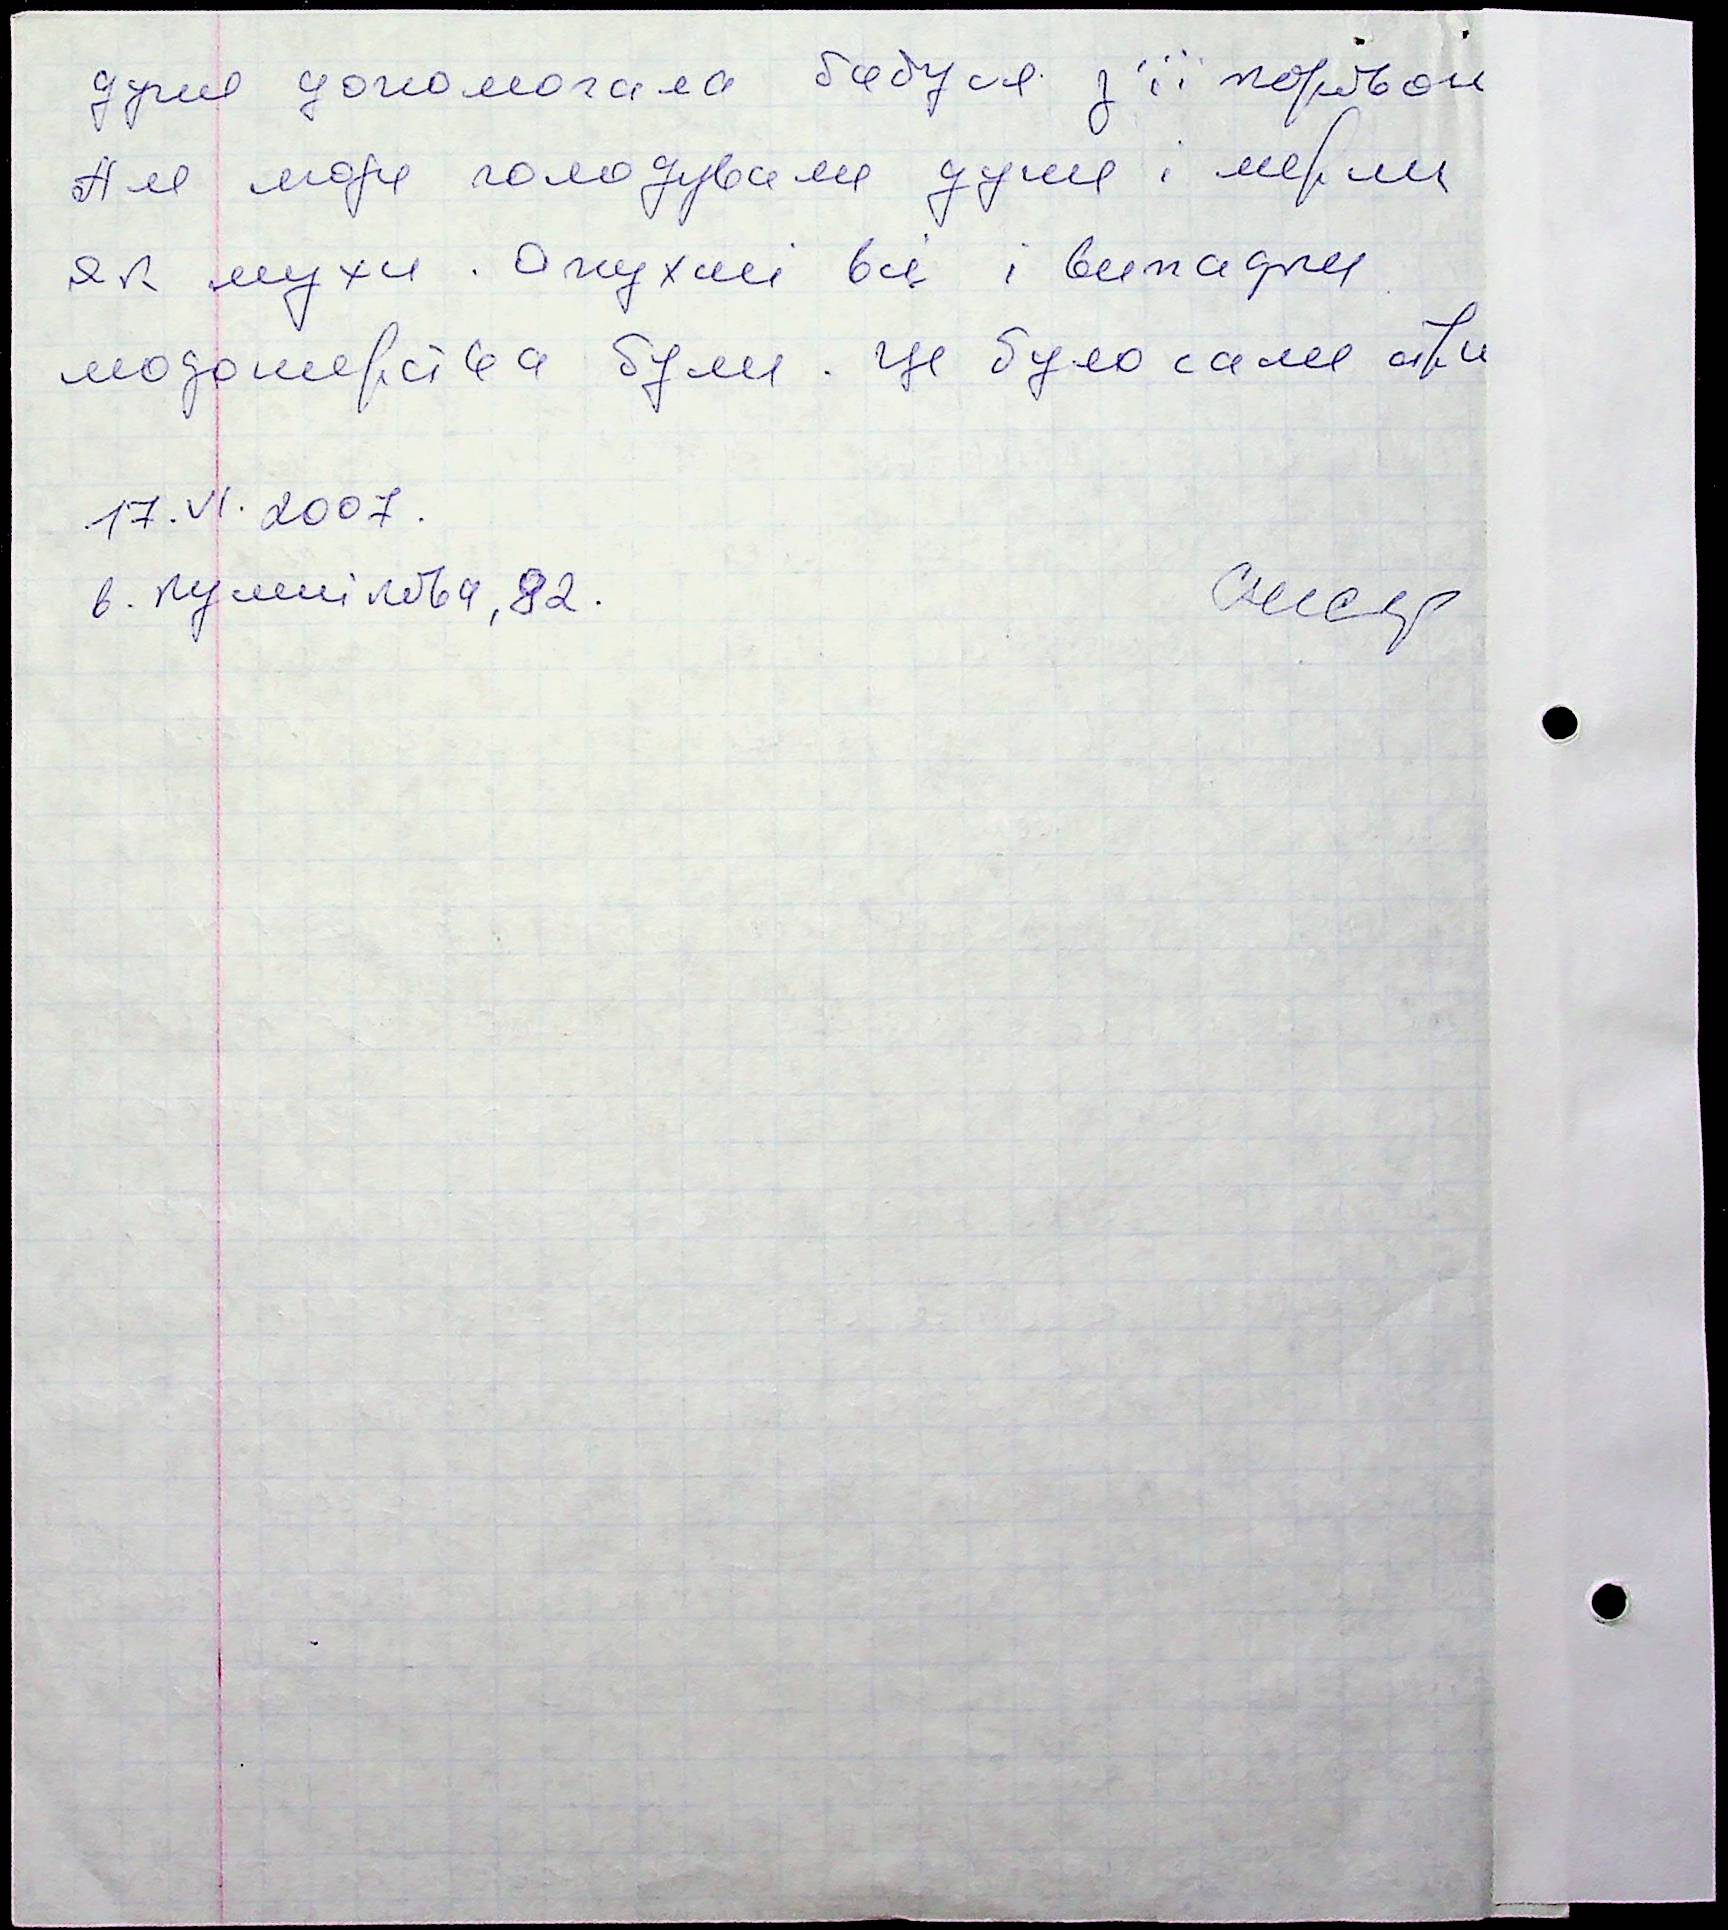 дуже допомогала бабуся з її коровою
Але люди голодували дуже і мерли
як мухи. Опухлі всі і випадки
людожерства були. Це було саме стра
17.VI.2007.
в. Кумнікова, 82.